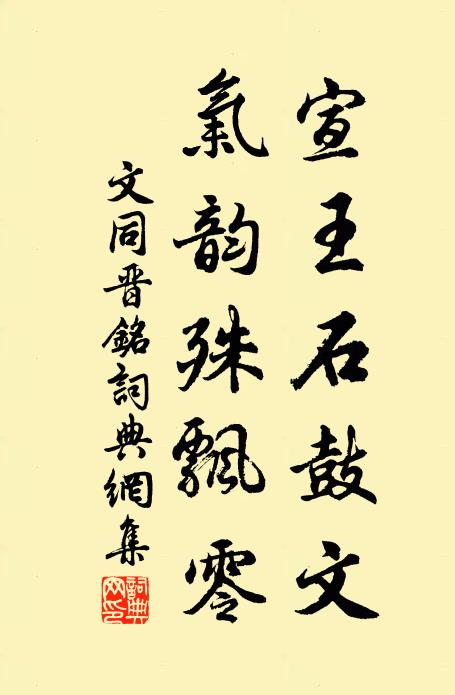 宣王石鼓文
氣韵殊飄零
文同晋銘詞典網集
詞典网印